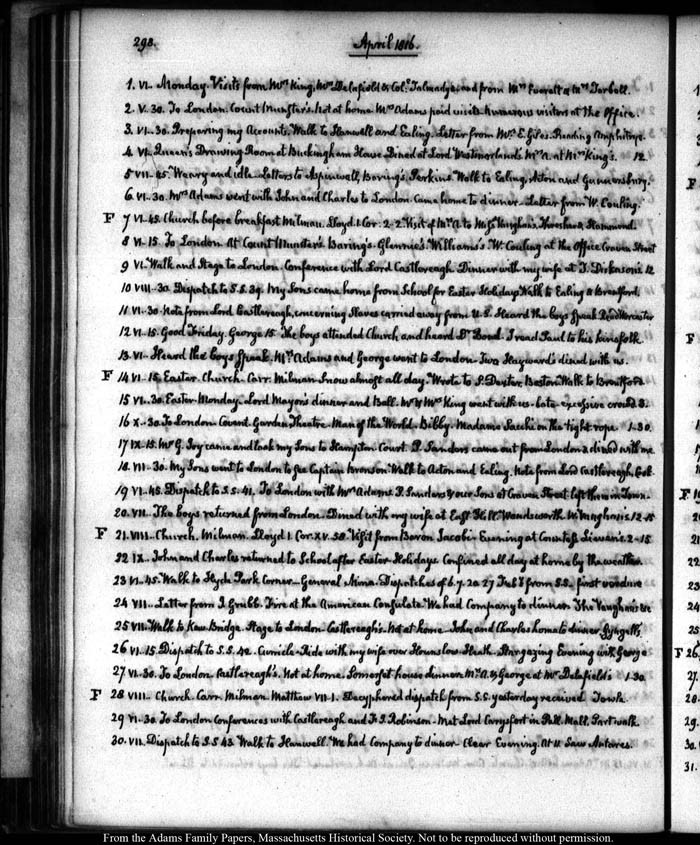 298.
April 1816.
1. VI. Monday. Visits from Mrs King, Mrs Delafield & Col. Talmadge and from Mrs Everett & Mrs Tarbell.
2. V. 30. To London. Count Munster's. Not at home. Mrs Adams paid visits. Numerous visitors at the Office.
3. VI. 30. Preparing my Accounts. Walk to Hanwell and Ealing. Letter from Mrs E. Giles. Reading Amphitrye.
4. VI. Queen's Drawing Room at Buckingham House Dined at Lord Westmorland's Mrs A. at Mrs King's. 12.
5 VII. 45. Weary and idle. Letters to Aspinwall, Baring's. Perkins. Walk to Ealing, Acton and Gunnersbury.
6. VI. 30. Mrs Adams went with John and Charles to London. Came home to dinner. Letter from W. Couling.
F 7 VI. 45. Church before breakfast Milman. Lloyd. 1. Cor: 2. 2. Visit of Mrs A to Miss Vaughan, Thresher & Hammond.
8 VI. 15. To London. At Count Munster's. Baring's. Glennie's. Williams's. W. Couling at the Office Craven Street
9 VI. Walk and Stage to London. Conference with Lord Castlereagh. Dinner with my wife at J. Dickason's. 12
10 VIII. 30. Dispatch to S.S. 39. My Sons came home from School for Easter Holidays. Walk to Ealing & Brentford.
11 VI. 30. Note from Lord Castlereagh, concerning Slaves carried away from U.S. Heard the boys speak.
12 VI. 15. Good Friday. George 15. The boys attended Church, and heard Dr Bond. I read Paul to his kinsfolk.
13. VI. Heard the boys speak. Mrs Adams and George went to London. Two Hayward's dined with us.
F 14 VI. 15. Easter. Church. Carr. Milman. Snow almost all day. Wrote to S. Dexter, Boston. Walk to Brentford.
15 VI. 30. Easter Monday. Lord Mayor's dinner and Ball. Mr & Mrs King went with us. Late. excessive crowd. 3.
16 X. 30. To London. Covent Garden Theatre. Man of the World. Bibby. Madame Sacchi on the tight rope. 1-30.
17 IX. 15. Mr G. Joy came and took my Sons to Hampton Court. P. Sanders came out from London & dined with me.
18. VII. 30. My Sons went to London to see Captain Bronson. Walk to Acton and Ealing. Note from Lord Castlereagh.
19 VI. 45. Dispatch to S.S. 41. To London with Mrs Adams. P. Sanders & our Sons at Craven Street left them in Town.
20. VII. The boys returned from London. Dined with my wife at East Hill. Wandsworth. W. Vaughan's. 12-15
F 21. VIII. Church. Milman. Lloyd 1. Cor. XV. 58. Visit from Baron Jacobi. Evening at Countess Lieven's. 2-15.
22 IX. John and Charles returned to School after Easter Holidays. Confined all day at home by the weather.
23 VI. 45. Walk to Hyde Park Corner. General Mina. Dispatches of 6. 7. 20. 27 Feby from S.S. first
24 VII. Letter from J. Grubb. Fire at the American Consulate. We had Company to dinner. The Vaughan's &c
25 VII. Walk to Kew Bridge. Stage to London. Castlereagh's. Not at home. John and Charles home to dinner.
26 VI. 15. Dispatch to S.S. 42. Curricle-Ride with my wife over Hounslow Heath. Stargazing Evening with George
27 VI. 30. To London. Castlereagh's. Not at home. Somerset house dinner. Mrs A. & George at Mr Delafield's 1-30.
F 28 VIII. Church. Carr. Milman. Matthew VII. 1. Decyphered dispatch from S.S. yesterday received.
29 VI. 30. To London Conferences with Castlereagh and F. J. Robinson. Met Lord Carysfort in Pall Mall. Part walk.
30. VII. Dispatch to S.S. 43. Walk to Hanwell. We had Company to dinner. Clear Evening. At 11. Saw Antares.
From the Adams Family Papers, Massachusetts Historical Society. Not to be reproduced without permission.